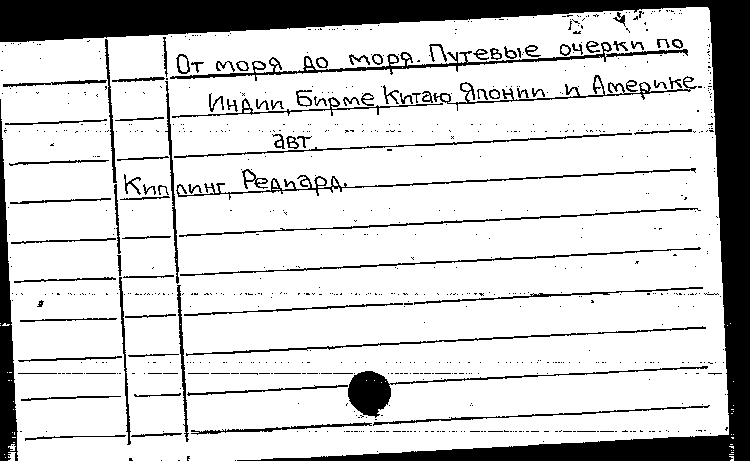 От моря до моря. Путевые очерки по
Индии, Бирме, Китаю, Японии и Америке.
авт.
Киплинг, Редиард.